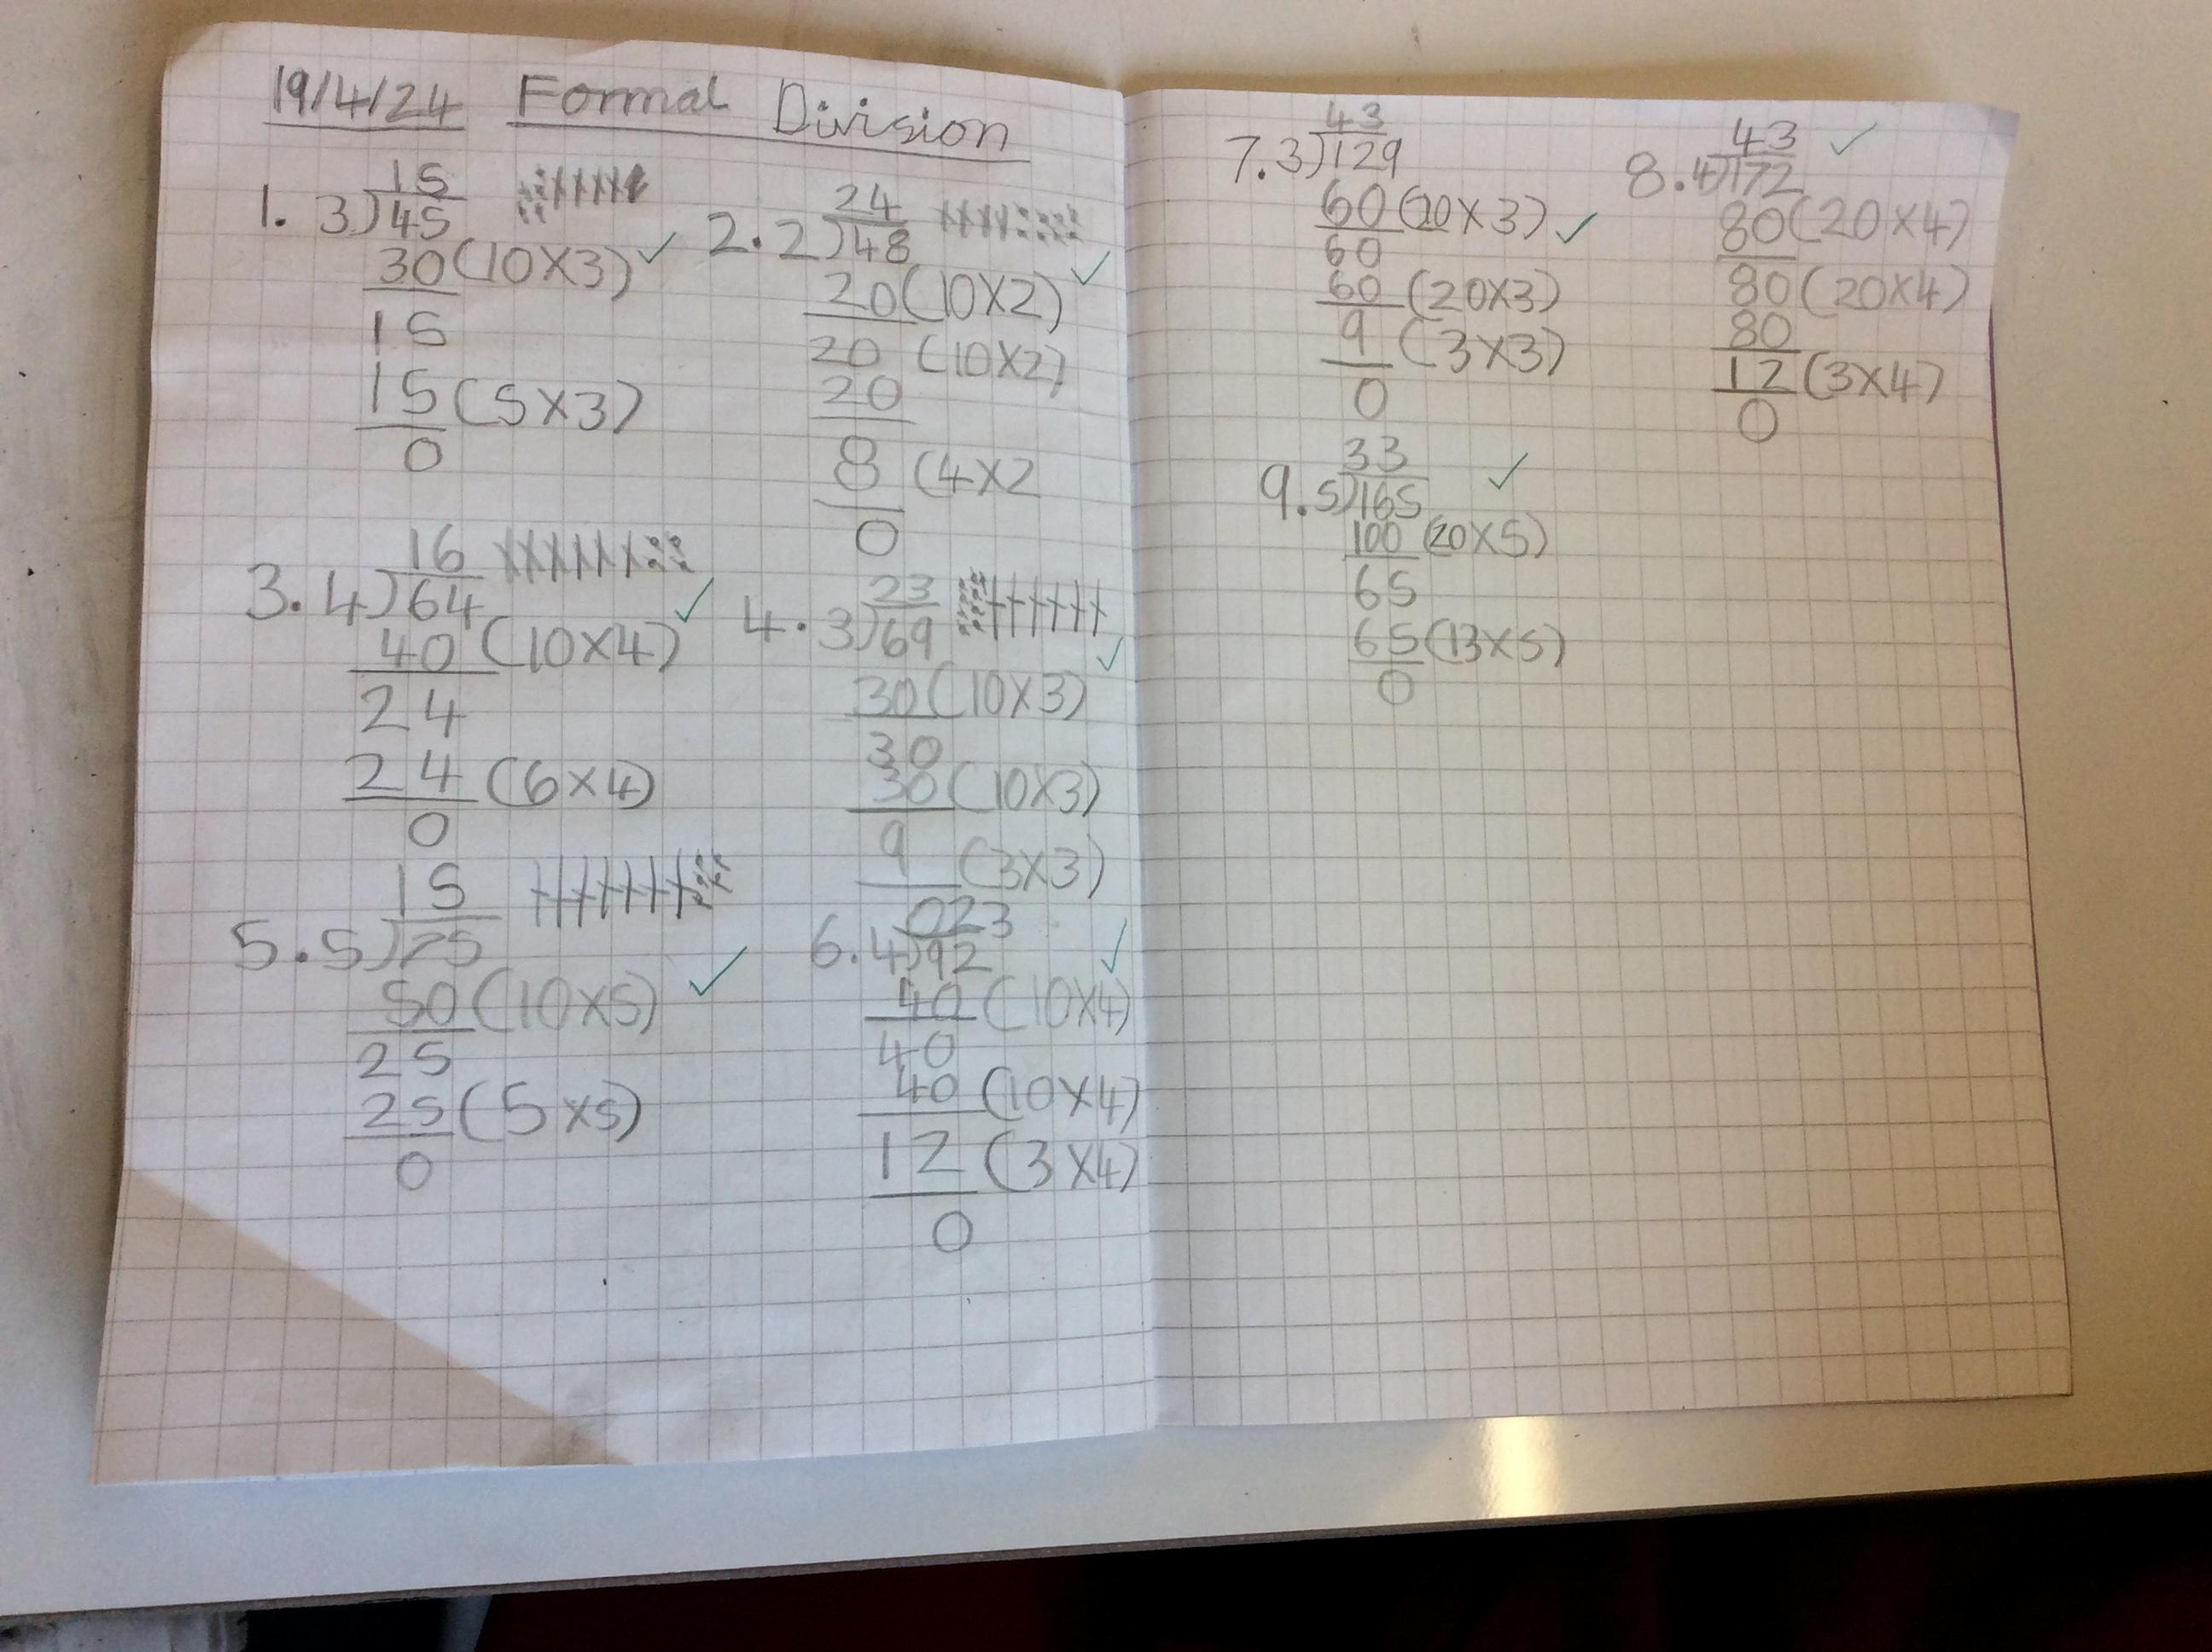 19/4/24 Formal Division
15
1. 3)45
30(10X3)
15
15(5X3)
0
24
2. 2)48
20(10X2)
20 (10X2)
20
8 (4X2
0
16
3. 4)64
40(10X4)
24
24(6X4)
0
23
4. 3)69
30(10X3)
30
30(10X3)
9 (3X3)
15
5. 5)75
50(10X5)
25
25(5X5)
0
023
6. 4)92
40(10X4)
40
40(10X4)
12(3X4)
0
43
7. 3)129
60(20X3)
60
60(20X3)
9(3X3)
0
43
8. 4)172
80(20X4)
80(20X4)
80
12(3X4)
0
33
9. 5)165
100(20X5)
65
65(13X5)
0